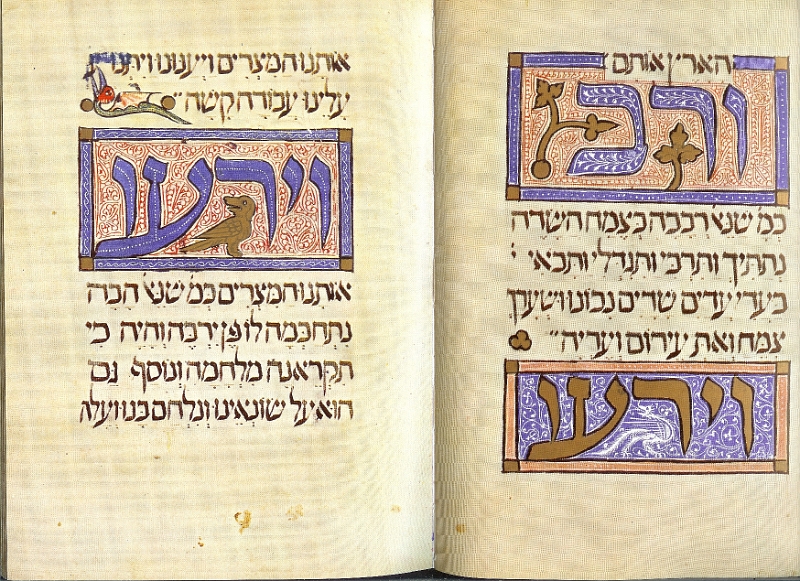 הארץ אותם
ורב
כמ שנא׳ רבבה כצמח השדה
נתתיך ותרבי ותגדלי ותבאי
בעדי עדים שדים נכונו ושערך
צמח ואת עירום ועריה
וירעו
אותנו המצרים ויענונו ויתנו
עלינו עבודה קשה
וירעו
אותנו המצרים כמ שנא׳ הבה
נתחכמה לו פן ירבה והיה כי
תקראנה מלחמה ונוסף גם
הוא על שונאינו ונלחם בנו ועלה